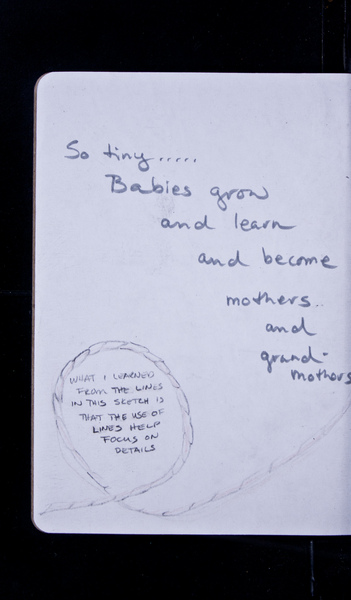 So tiny.....
Babies grow
and learn
and become
mothers..
and
grand-
mothers
WHAT I LEARNED
FROM THE LINES
IN THIS SKETCH IS
THAT THE USE OF
LINES HELP
FOCUS ON
DETAILS